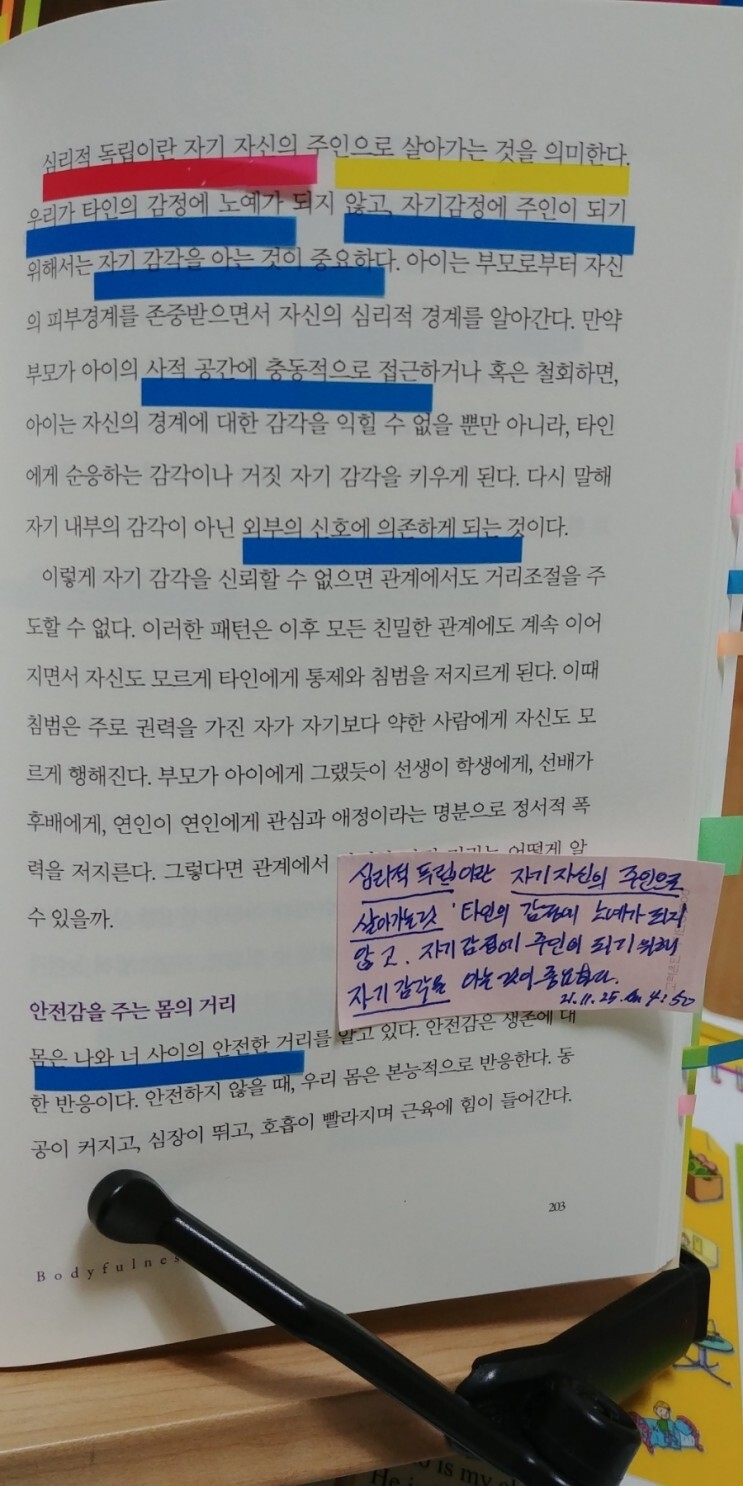 심리적 독립이란 자기 자신의 주인으로 살아가는 것을 의미한다.
우리가 타인의 감정에 노예가 되지 않고, 자기감정에 주인이 되기
위해서는 자기 감각을 아는 것이 중요하다. 아이는 부모로부터 자신
의 피부경계를 존중받으면서 자신의 심리적 경계를 알아간다. 만약
부모가 아이의 사적 공간에 충동적으로 접근하거나 혹은 철회하면,
아이는 자신의 경계에 대한 감각을 익힐 수 없을 뿐만 아니라, 타인
에게 순응하는 감각이나 거짓 자기 감각을 키우게 된다. 다시 말해
자기 내부의 감각이 아닌 외부의 신호에 의존하게 되는 것이다.
이렇게 자기 감각을 신뢰할 수 없으면 관계에서도 거리조절을 주
도할 수 없다. 이러한 패턴은 이후 모든 친밀한 관계에도 계속 이어
지면서 자신도 모르게 타인에게 통제와 침범을 저지르게 된다. 이때
침범은 주로 권력을 가진 자가 자기보다 약한 사람에게 자신도 모
르게 행해진다. 부모가 아이에게 그랬듯이 선생이 학생에게, 선배가
후배에게, 연인이 연인에게 관심과 애정이라는 명분으로 정서적 폭
력을 저지른다. 그렇다면 관계에서 어떻게 알
수 있을까.
심리적 독립이란 자기 자신의 주인으로
살아가는것 타인의 감정에 노예가 되지
않고. 자기감정에 주인이 되기 위해
자기감각을 아는 것이 중요하다.
21.11.25. 4:50
안전감을 주는 몸의 거리
몸은 나와 너 사이의 안전한 거리를 알고 있다. 안전감은 생존에 대
한 반응이다. 안전하지 않을 때, 우리 몸은 본능적으로 반응한다. 동
공이 커지고, 심장이 뛰고, 호흡이 빨라지며 근육에 힘이 들어간다.
203
Bodyfulness
is my
He i